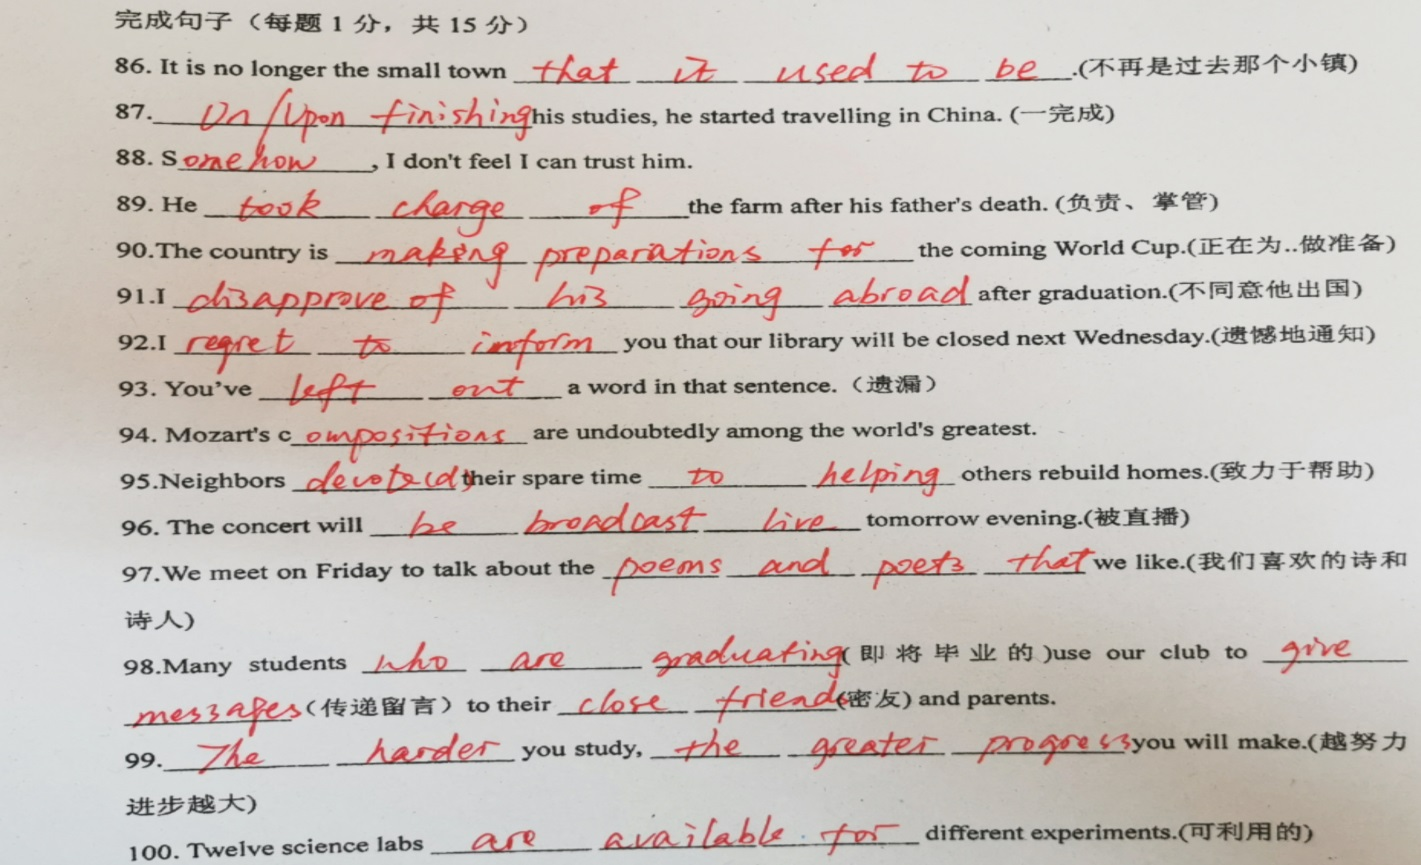 完成句子（每题 1 分，共 15 分）
86. It is no longer the small town that it used to be.(不再是过去那个小镇)
87. On/Upon finishing his studies, he started travelling in China. (一完成)
88. Somehow, I don't feel I can trust him.
89. He took charge of the farm after his father's death. (负责、掌管)
90.The country is making preparations for the coming World Cup.(正在为..做准备)
91.I disapprove of his going abroad after graduation.(不同意他出国)
92.I regret to inform you that our library will be closed next Wednesday.(遗憾地通知)
93. You've left out a word in that sentence.（遗漏）
94. Mozart's compositions are undoubtedly among the world's greatest.
95.Neighbors devote(d) their spare time to helping others rebuild homes.(致力于帮助)
96. The concert will be broadcast live tomorrow evening.(被直播)
97.We meet on Friday to talk about the poems and poets that we like.(我们喜欢的诗和
诗人)
98.Many students who are graduating(即将毕业的)use our club to give
messages(传递留言）to their close friends(密友) and parents.
99. The harder you study, the greater progress you will make.(越努力
进步越大)
100. Twelve science labs are available for different experiments.(可利用的)